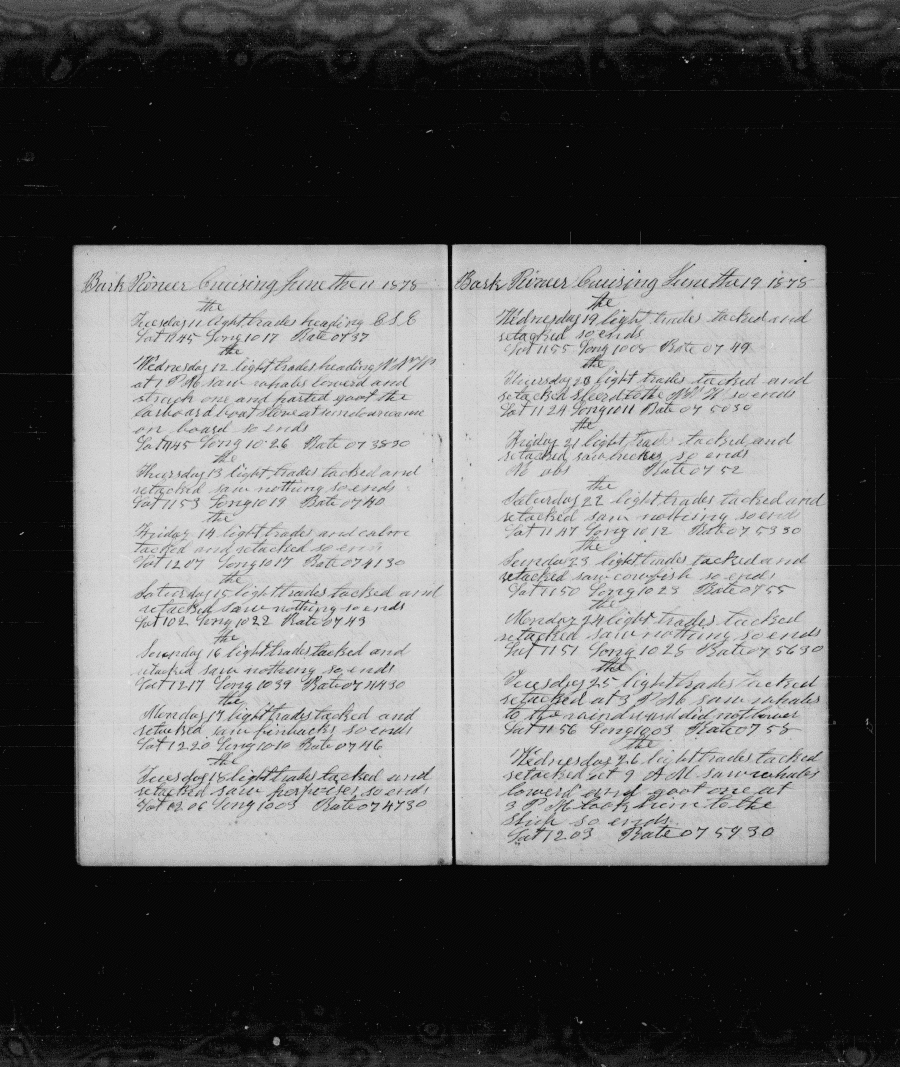 Bark Pioneer Cruising June the 11 1878
the
Tuesday 11 light trades heading E S E
Lat 11 45 Long 10 17 Rate 07 37
the
Wednesday 12 light trades heading
at 1 P M saw whales lowerd and
struck one and parted goot the
larboard boat stove at sundown came
on board so ends
Lat 11 45 Long 10 26 Rate 07 38 30
the
Thursday 13 light trades tacked and
retacked saw nothing so ends
Lat 11 53 Long 10 19 Rate 07 40
the
Friday 14 light trades and calm
tacked and retacked so ends
Lat 12 07 Long 10 17 Rate 07 41 30
the
Saturday 15 light trades tacked and
retacked saw nothing so ends
Lat 10 2 Long 10 22 Rate 07 43
the
Sounday 16 light trades tacked and
retacked saw nothing so ends
Lat 12 17 Long 10 39 Rate 07 44 30
the
Monday 17 light trades tacked and
retacked saw finbacks so ends
Lat 12 20 Long 10 10 Rate 07 46
the
Tuesday 18 light trades tacked and
retacked saw porpoises so ends
Lat 12 06 Long 10 03 Rate 07 47 30
Bark Pioneer Cruising June the 19 1878
the
Wednesday 19 light trades tacked and
retacked so ends
Lat 11 55 Long 10 08 Rate 07 49
the
Thursday 20 light trades tacked and
retacked steerd to the so ends
Lat 11 24 Long 10 11 Rate 07 50 30
the
Friday 21 light trades tacked and
retacked saw so ends
No obs Rate 07 52
the
Saturday 22 light trades tacked and
retacked saw nothing so ends
Lat 11 47 Long 10 12 Rate 07 53 30
the
Sunday 23 light trades tacked and
retacked saw cowfish so ends
Lat 11 50 Long 10 23 Rate 07 55
the
Monday 24 light trades tacked
retacked saw nothing so ends
Lat 11 51 Long 10 28 Rate 07 56 30
the
Tuesday 25 light trades tacked
retacked at 3 P M saw whales
to the windward did not lower
Lat 11 56 Long 10 03 Rate 07 58
the
Wednesday 26 light trades tacked
retacked at 9 A M saw whales
lowerd and goot one at
3 P M took him to the
ship so ends
Lat 12 03 Rate 07 59 30